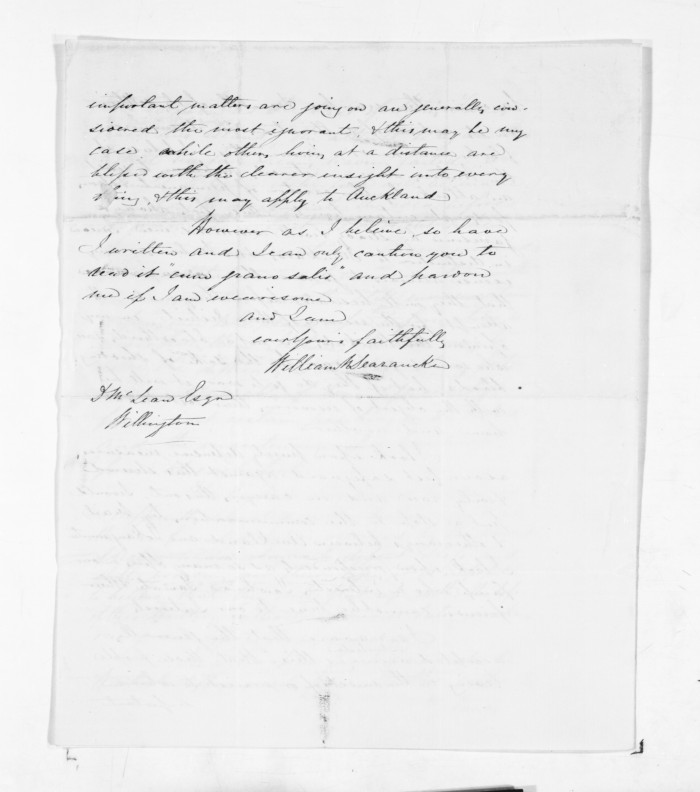 important matters are going on are generally con-
sidered the most ignorant, & this may be my
case while others living at a distance are
blessed with the clearer insight into every
thing, & this may apply to Auckland
However as I believe so have
I written and I can only caution you to
read it "cum grano salis" and pardon
me if I am wearisome
and I am
ever yours faithfully
William N Searancke
D McLean Esqre
Wellington